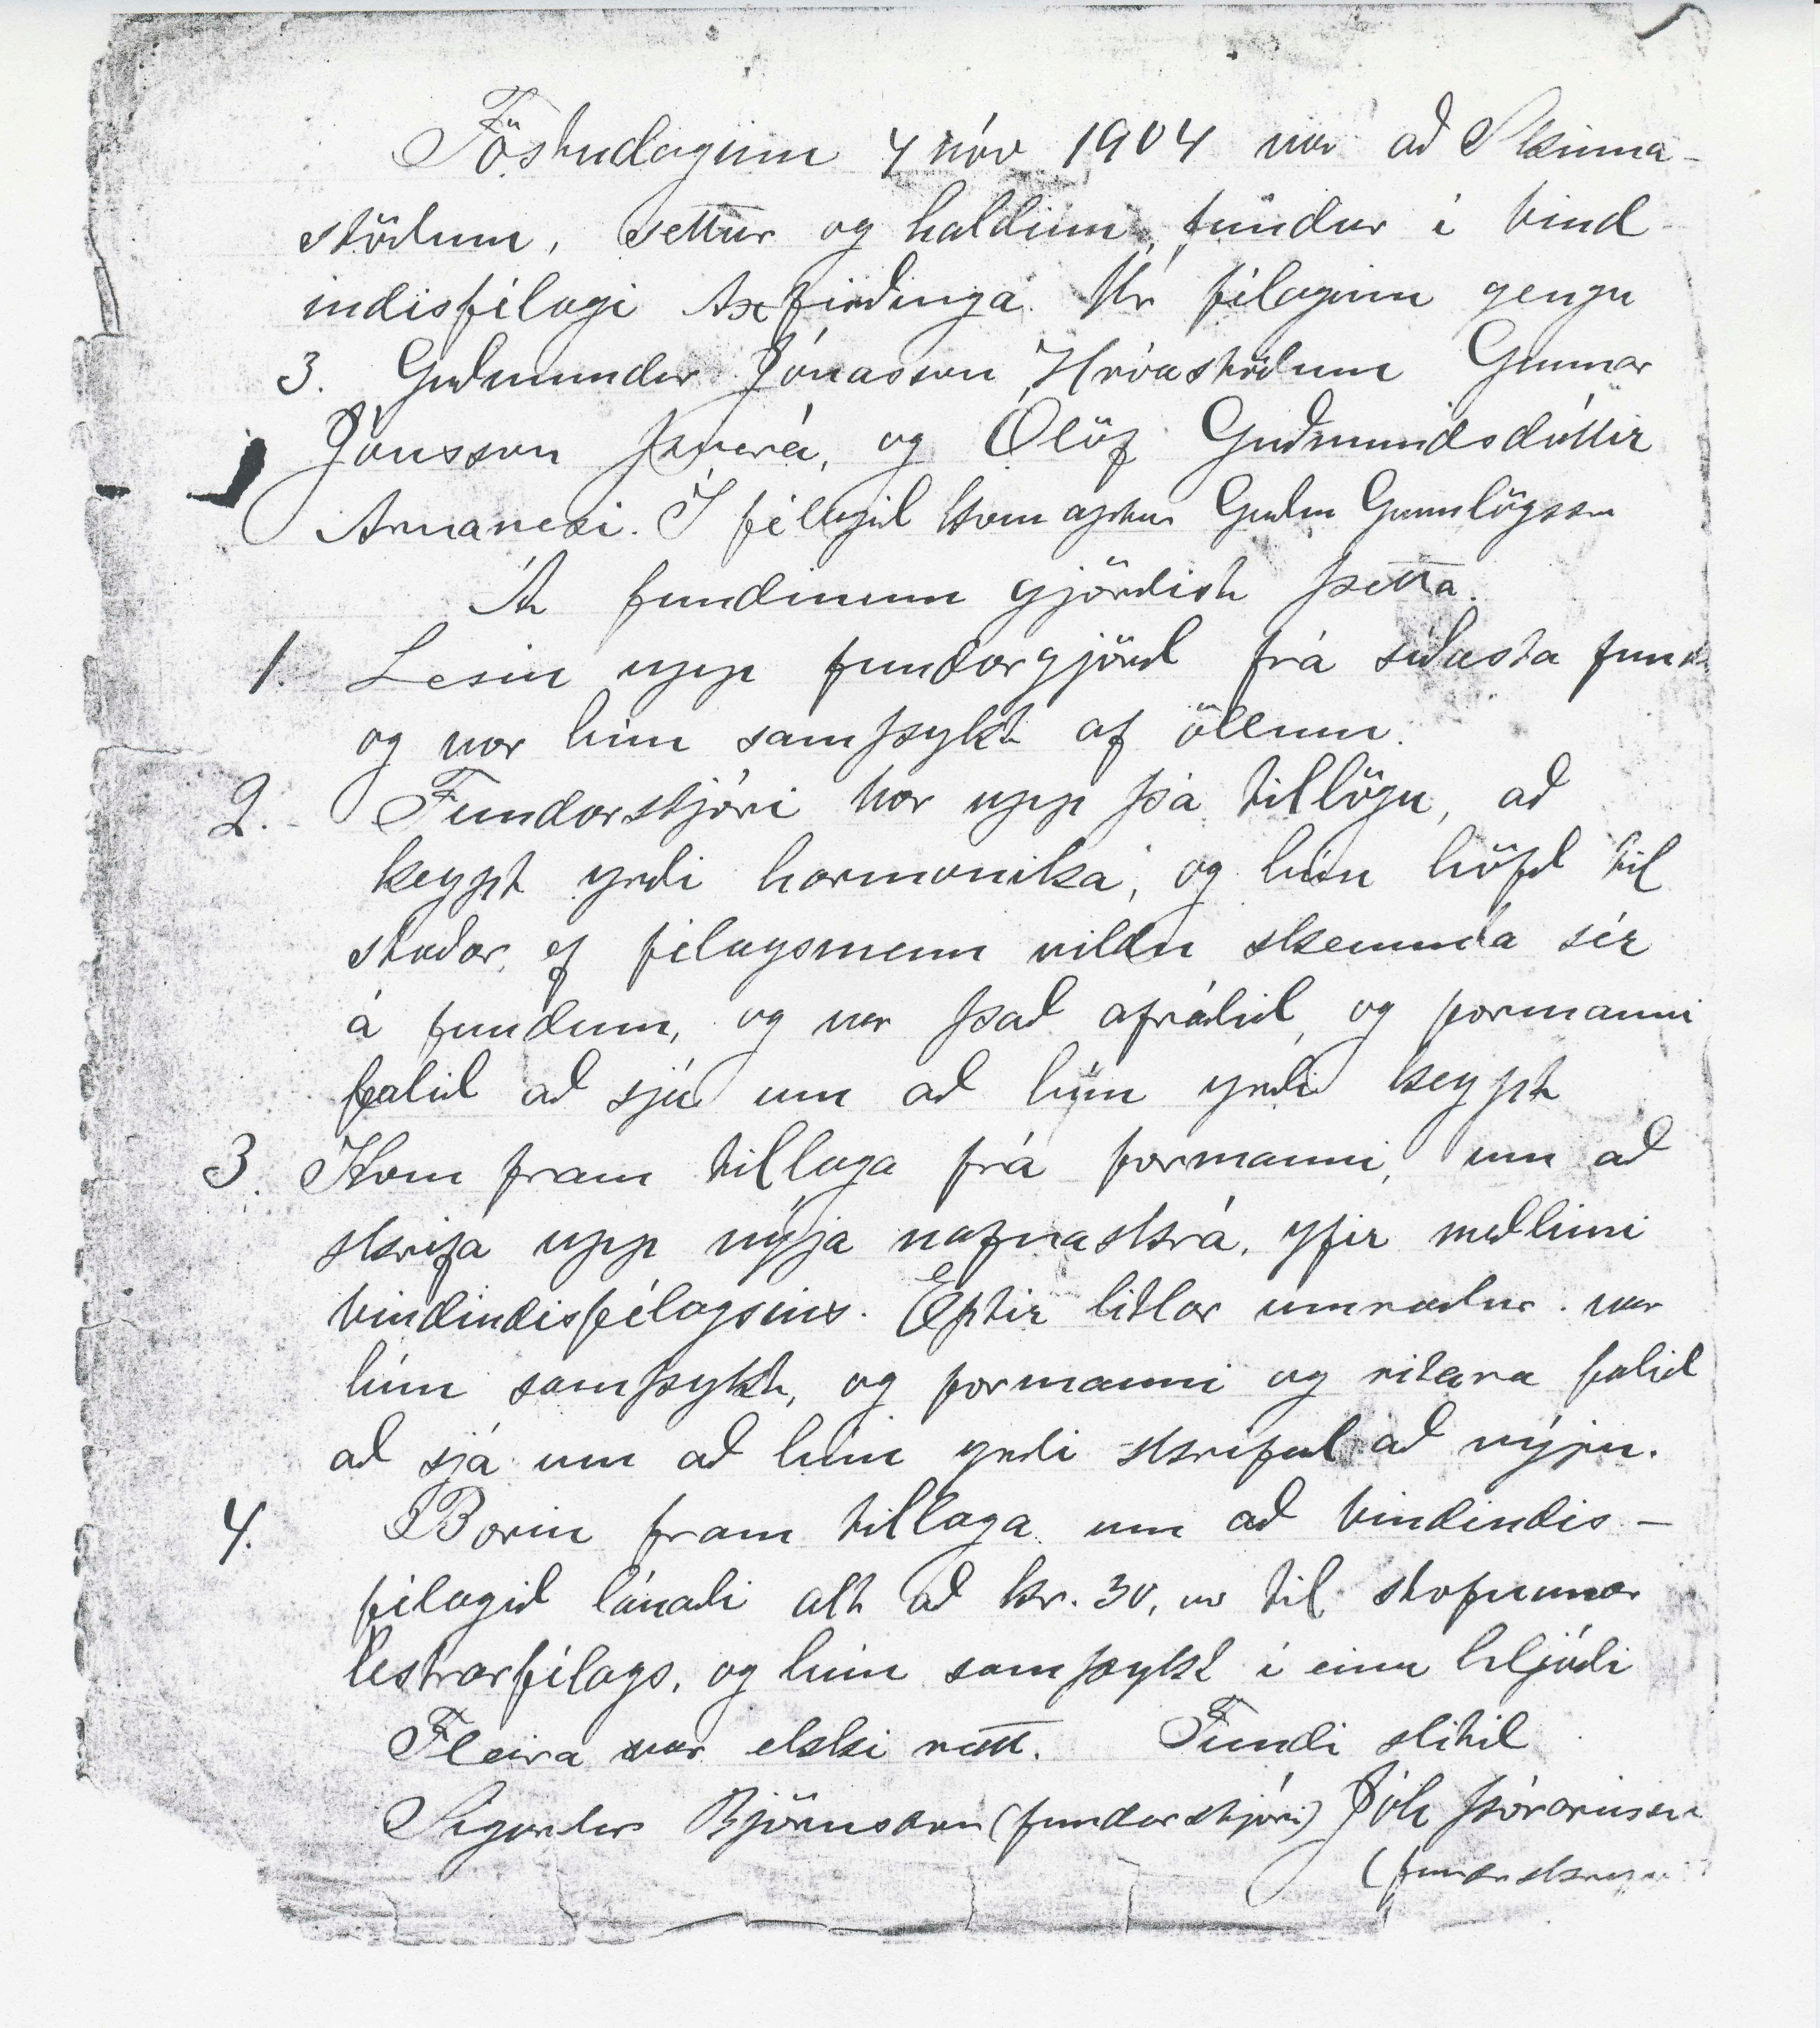 Föstudaginn 4 nóv 1904 var að Skinna-
stöðum, settur og haldinn, fundur í bind-
indisfélagi Axfirðinga. Úr félaginu gengu
3. Guðmundur Jónasson Hróastöðum Gunnar
Jónsson Þverá, og Ólöf Guðmundsdóttir
Arnanesi. Í félagið kom aptur Guðm Gunnlögsson
Á fundinum gjörðist þetta.
1. Lesin upp fundargjörð frá síðasta fund
og var hún samþykt af öllum.
2. Fundarstjóri bar upp þá tillögu, að
keypt yrði harmonika, og hún höfð til
staðar, ef félagsmenn vildu skemmta sér
á fundum, og var það afráðið, og formanni
falið að sjá um að hún yrði keypt
3. Kom fram tillaga frá formanni, um að
skrifa upp nýja nafnaskrá, yfir meðlimi
bindindisfélagsins. Eptir litlar umræður var
hún samþykt, og formanni og ritara falið
að sjá um að hún yrði skrifuð að nýju.
4. Borin fram tillaga um að bindindis-
félagið lánaði alt að kr. 30,00 til stofunnar
lestrarfélags, og hún samþykt í einu hljóði
Fleira var ekki rætt. Fundi slitið
Sigurður Björnsson (fundarstjóri) Jóh Þórarinsson